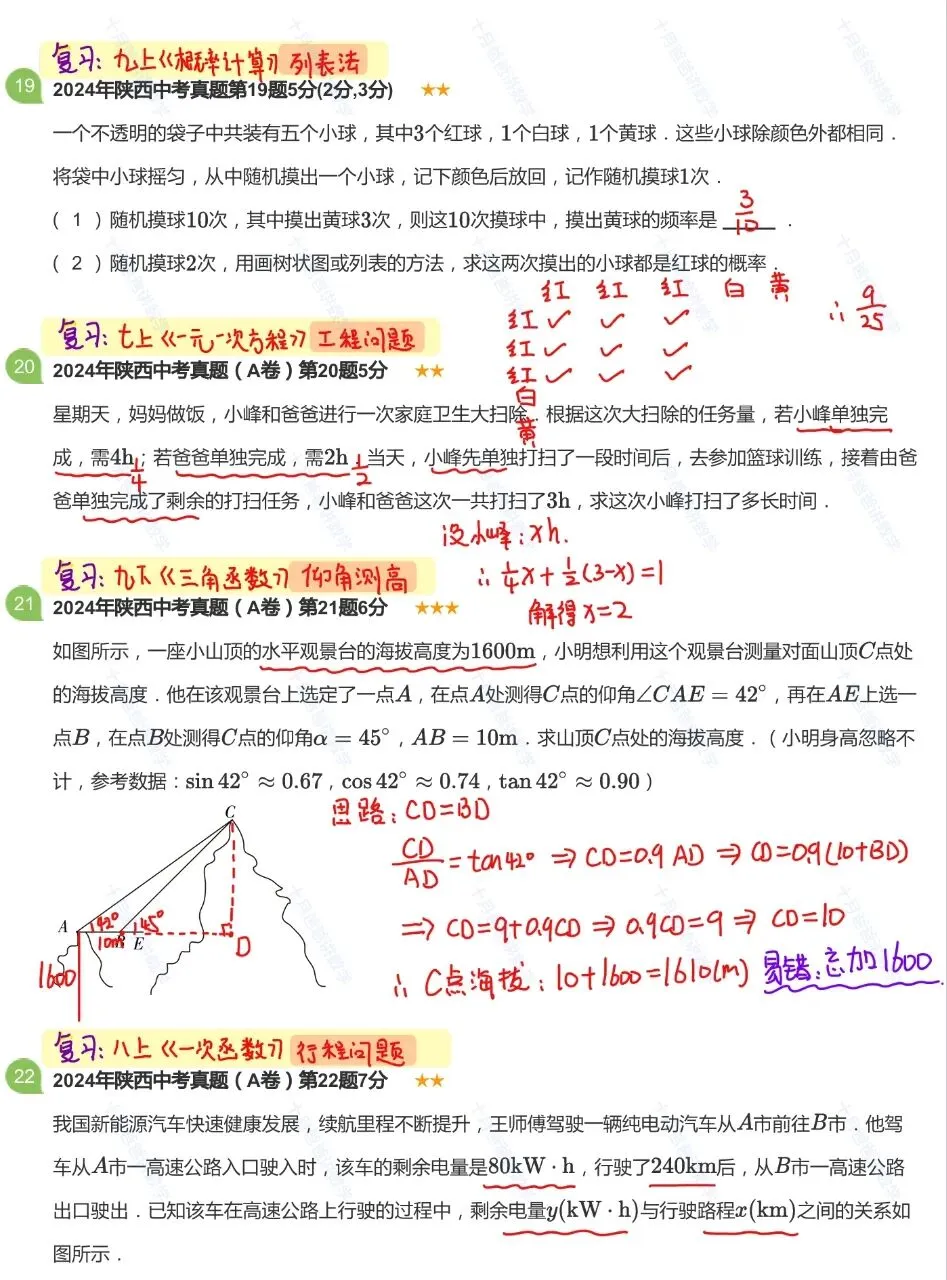 复习: 九上《概率计算》列表法
19
2024年陕西中考真题第19题5分(2分,3分) ★★
一个不透明的袋子中共装有五个小球，其中3个红球，1个白球，1个黄球．这些小球除颜色外都相同．
将袋中小球摇匀，从中随机摸出一个小球，记下颜色后放回，记作随机摸球1次．
（ 1 ）随机摸球10次，其中摸出黄球3次，则这10次摸球中，摸出黄球的频率是 3/10 ．
（ 2 ）随机摸球2次，用画树状图或列表的方法，求这两次摸出的小球都是红球的概率．
红 红 红 白 黄
红 ✓ ✓ ✓
∴ 9/25
红 ✓ ✓ ✓
红 ✓ ✓ ✓
白
黄
复习: 七上《一元一次方程》工程问题
20
2024年陕西中考真题（A卷）第20题5分 ★★
星期天，妈妈做饭，小峰和爸爸进行一次家庭卫生大扫除．根据这次大扫除的任务量，若小峰单独完
成，需4h；若爸爸单独完成，需2h．当天，小峰先单独打扫了一段时间后，去参加篮球训练，接着由爸
1/4 1/2
爸单独完成了剩余的打扫任务，小峰和爸爸这次一共打扫了3h，求这次小峰打扫了多长时间．
设小峰: xh.
∴ 1/4x+1/2(3-x)=1
解得x=2
复习: 九下《三角函数》仰角测高
21
2024年陕西中考真题（A卷）第21题6分 ★★★
如图所示，一座小山顶的水平观景台的海拔高度为1600m，小明想利用这个观景台测量对面山顶C点处
的海拔高度．他在该观景台上选定了一点A，在点A处测得C点的仰角∠CAE = 42°，再在AE上选一
点B，在点B处测得C点的仰角α = 45°，AB = 10m．求山顶C点处的海拔高度．（小明身高忽略不
计，参考数据：sin 42° ≈ 0.67，cos 42° ≈ 0.74，tan 42° ≈ 0.90）
思路: CD=BD
CD/AD=tan42° ⇒ CD=0.9AD ⇒ CD=0.9(10+BD)
⇒ CD=9+0.9CD ⇒ 0.9CD=9 ⇒ CD=10
∴ C点海拔: 10+1600=1610(m)
易错: 忘加1600
C
A 42° 45°
10m B E D
1600
复习: 八上《一次函数》行程问题
22
2024年陕西中考真题（A卷）第22题7分 ★★
我国新能源汽车快速健康发展，续航里程不断提升，王师傅驾驶一辆纯电动汽车从A市前往B市．他驾
车从A市一高速公路入口驶入时，该车的剩余电量是80kW · h，行驶了240km后，从B市一高速公路
出口驶出．已知该车在高速公路上行驶的过程中，剩余电量y(kW · h)与行驶路程x(km)之间的关系如
图所示．